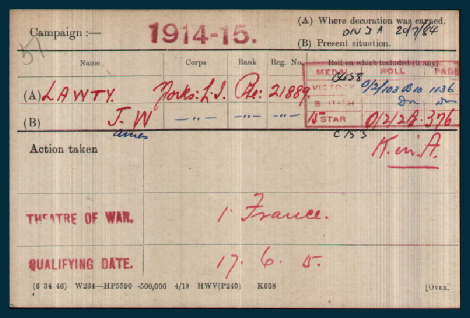 Campaign :— 1914-15. (A) Where decoration was earned.
(B) Present situation.
51
Name Corps Rank Reg. No. Roll on which included (if any).
MEDAL ROLL PAGE
(A) LAWTY. Yorks: L.I. Pte: 21889. VICTORY O/2/103 B10 1136
(B) J. W —"— —"— —"— BRITISH Do Do
James
15 STAR O/2/2B. 376
Action taken K. in A.
THEATRE OF WAR. 1. France.
QUALIFYING DATE. 17. 6. 15.
(6 34 46) W234—HP5590 -500,000 4/19 HWV(P240) K608 (OVER.